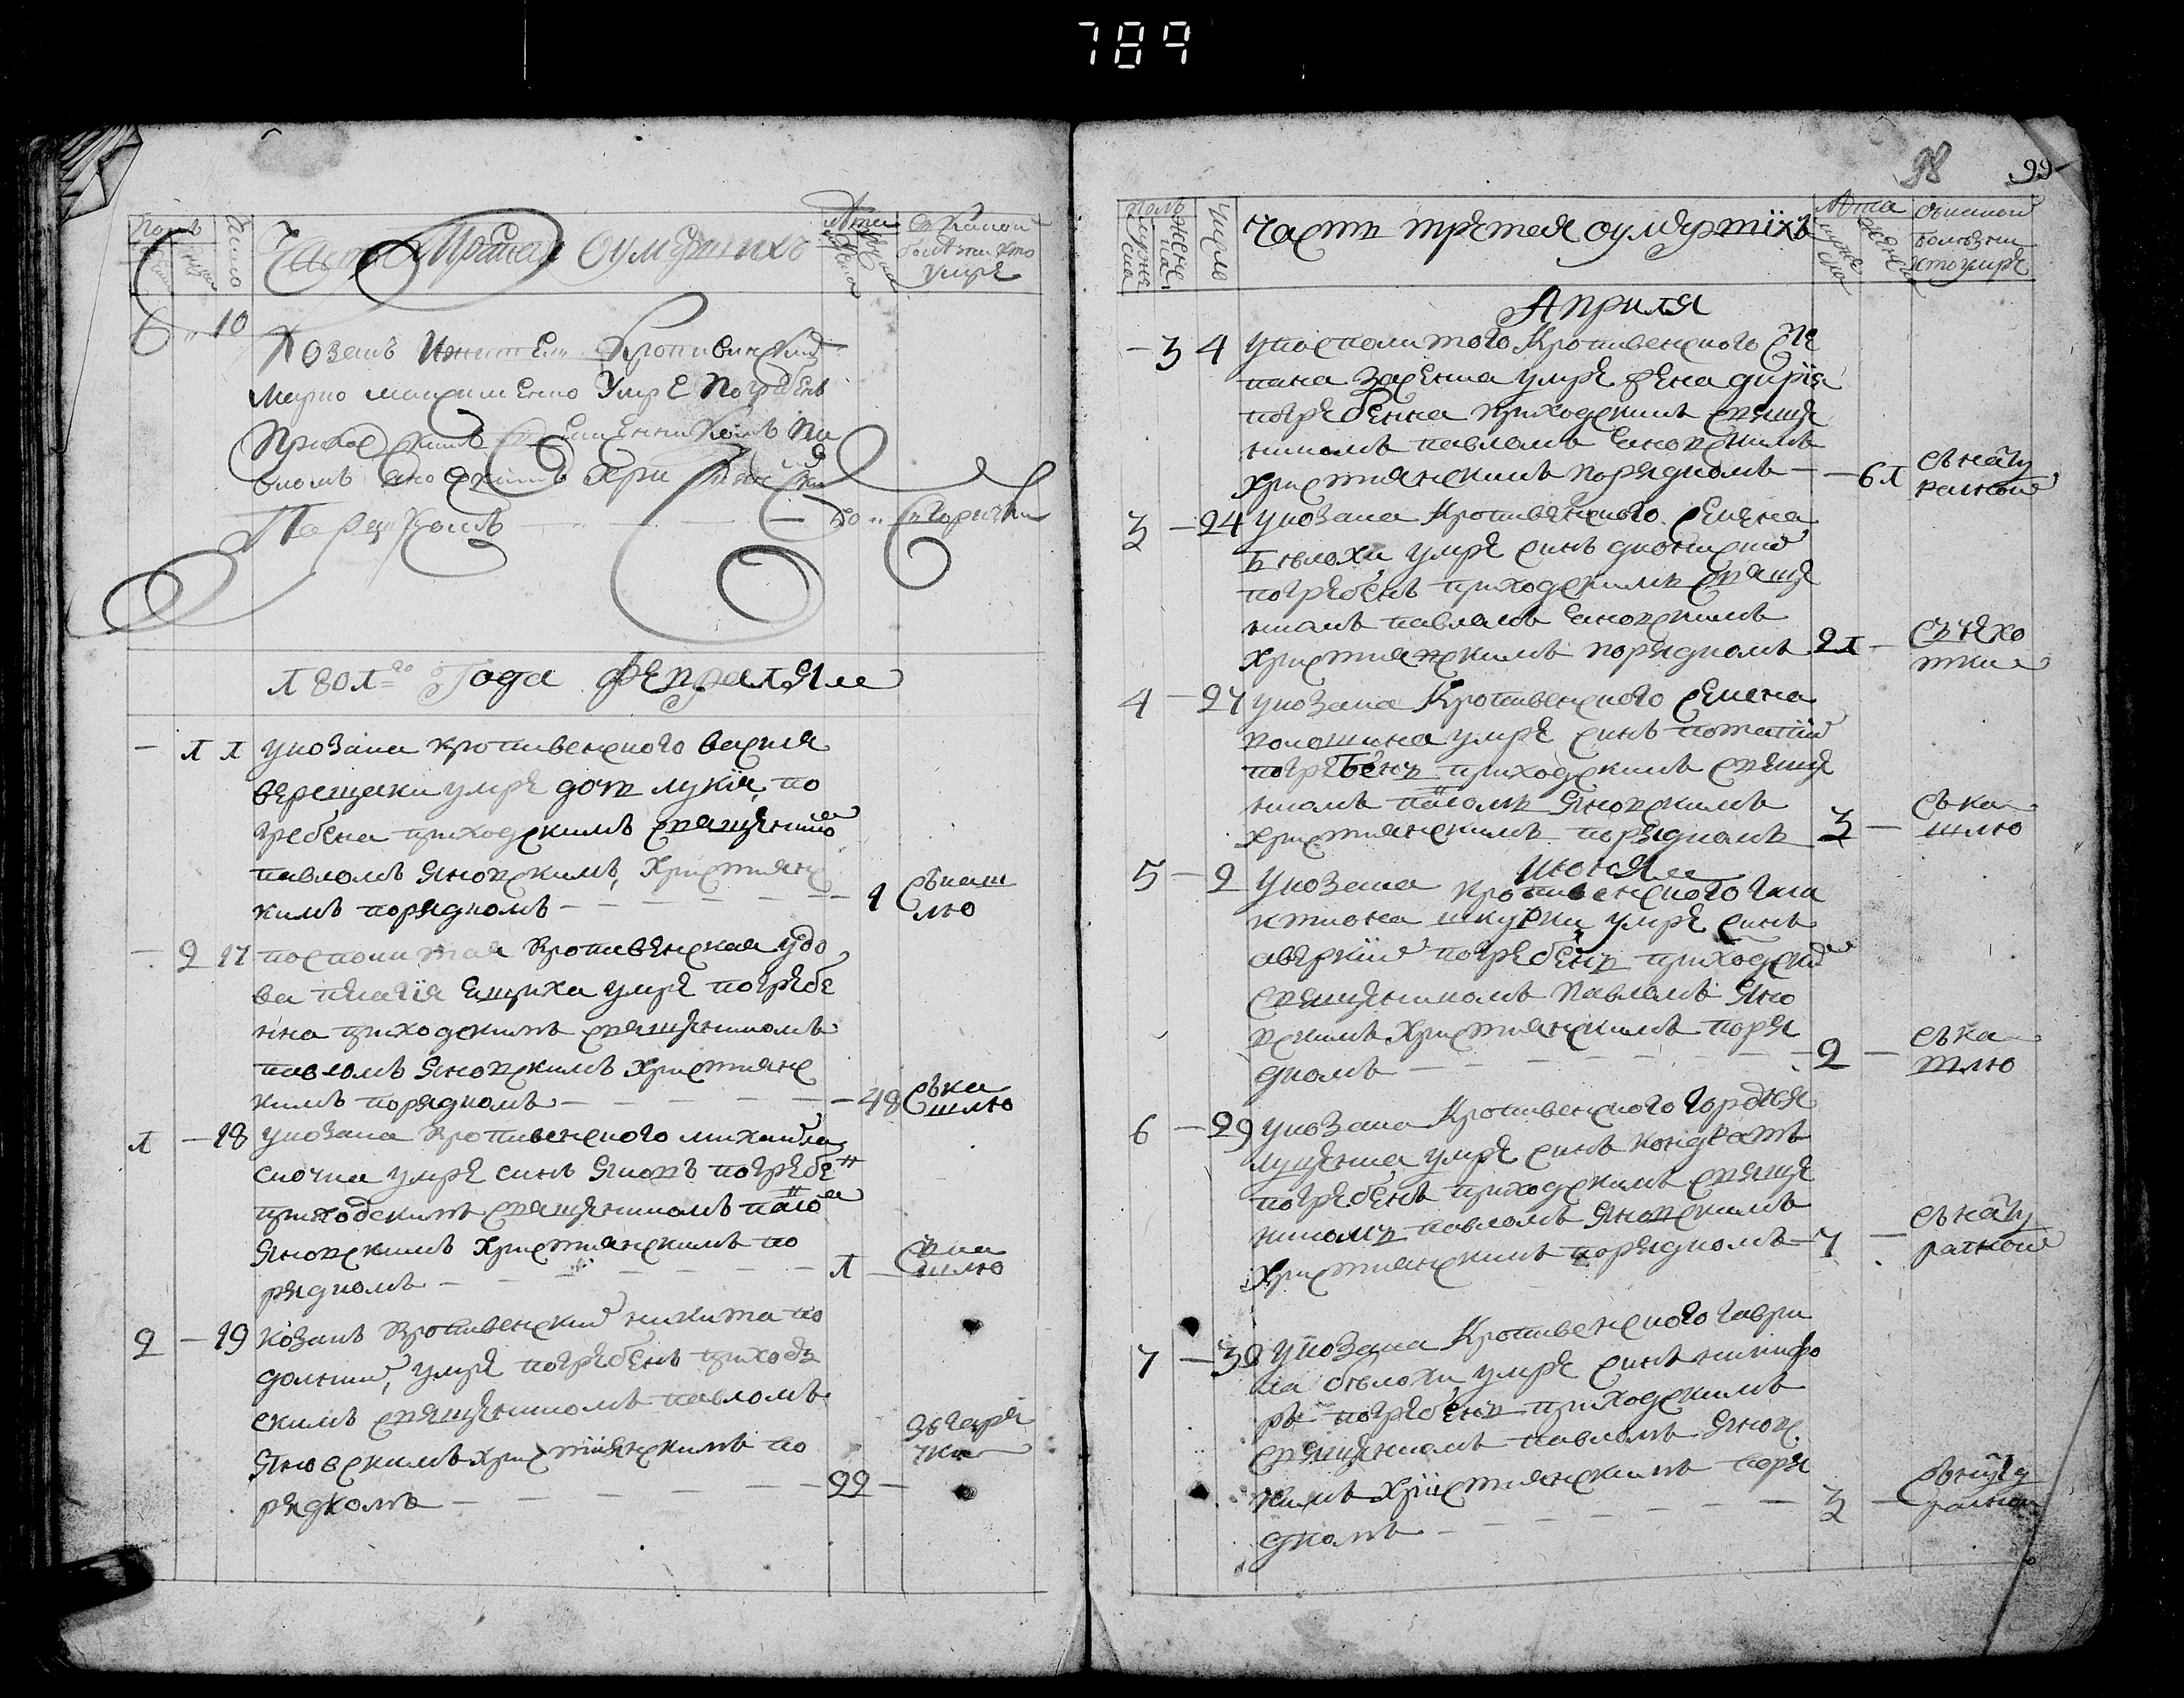 789
Полъ
Число
Часть Третая Оумершихъ
Лѣта
Какой
болѣзни кто
умре
6 10
Козакъ Кропивенский
Марко умре погребенъ
Приходскимъ священникомъ Па
вломъ Яновскимъ Християнскимъ
Порядкомъ — — — 50 Горячки
1801го Года Февраля
— 1 1 у козака кропивенского василя
верещаки умре дочь лукия по
гребена приходскимъ священико
павломъ Яновскимъ, Християнс
кимъ порядкомъ — — — 1 съкаш
лю
— 2 17 посполитая кропивенская удо
ва пелагія Ещиха умре погребе
нна приходскимъ священикомъ
павломъ Яновскимъ Християнс
кимъ порядкомъ — — — 48 съка
шлю
1 — 18 у козака кропивенского михайла
сиочка умре синъ Яковъ погребен
приходскимъ священикомъ павло
Яновскимъ Християнскимъ по
рядкомъ — — — 1 — съка
шлю
2 — 19 козакъ кропивенский никита по
долний, умре погребенъ приход
скимъ священикомъ павломъ
Яновскимъ християнскимъ по
рядкомъ — — — 22 — зъ гаря
чки
98 99
Полъ
мужеска
женска
Число
Часть третая оумерших
Лѣта
мужеска
женска
какой
болезни
кто умре
Априля
— 3 4 у посполитого Кропивенского Сте
пана умре жена дария
погребенна приходскимъ свяще
никомъ павломъ Яновскимъ
Християнскимъ порядкомъ — — 61 съ нату
ралной
3 — 24 у козака Кропивенского Семена
Бѣлохи умре синъ дионисий
погребенъ приходскимъ свяще
никомъ павломъ Яновскимъ
християнскимъ порядкомъ 21 — съ чехо
тки
4 — 27 у козака Кропивенского Семена
волошина умре синъ потапий
погребенъ приходскимъ свяще
никомъ павломъ Яновскимъ
християнскимъ порядкомъ 3 — съ ка
шлю
июня
5 — 2 у козака Кропивенского гала
ктиона шкурки умре синъ
аверкий погребенъ приходский
священикомъ павломъ Яно
вскимъ Християнскимъ поря
дкомъ — — — 2 — съ ка
шлю
6 — 29 у козака Кропивенского гордѣя
луценка умре синъ кондратъ
погребенъ приходскимъ свяще
никомъ павломъ Яновскимъ
Християнскимъ порядкомъ — 7 — съ нату
ралной
7 — 30 у козака Кропивенского гаври
ла бѣлохи умре синъ никифо
ръ погребенъ приходскимъ
священикомъ павломъ Яновс
кимъ Християнскимъ поря
дкомъ — — — 3 — съ нату
ралной